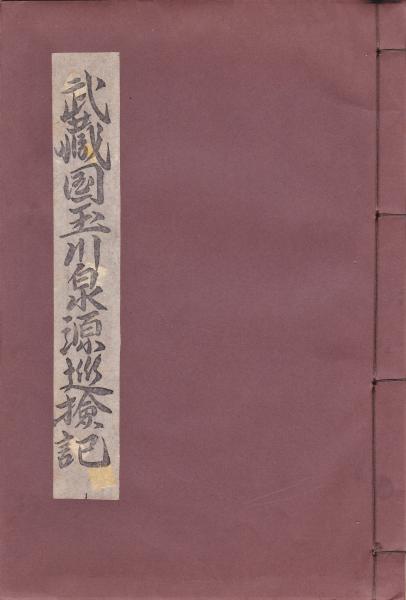 武蔵国玉川泉源巡撿記